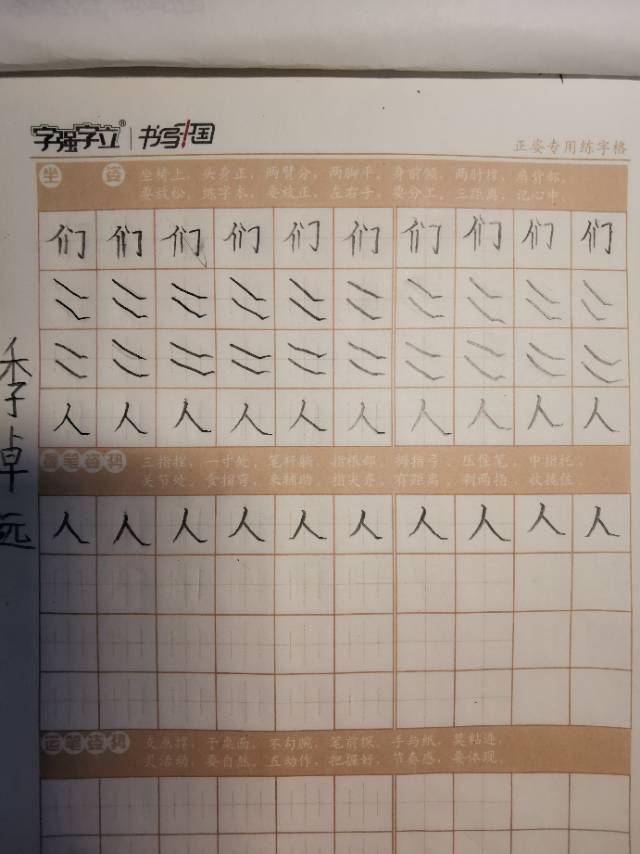 字强字立® 书写中国
正姿专用练字格
坐姿 坐椅上，头身正，两臂分，两脚平，身前倾，两肘撑，肩背部，
要放松，练字本，要放正，左右手，要分工，三距离，记心中。
们 们 们 们 们 们 们 们 们 们
人 人 人 人 人 人 人 人 人 人
握笔姿势 三指捏，一寸处，笔杆躺，指根部，拇指弓，压住笔，中指托，
关节处，食指弯，来辅助，指尖齐，有距离，剩两指，收拢住。
人 人 人 人 人 人 人 人 人 人
运笔姿势 支点撑，于桌面，不勾腕，笔前探，手与纸，莫粘连，
灵活动，要自然，互动作，把握好，节奏感，要体现。
卓远